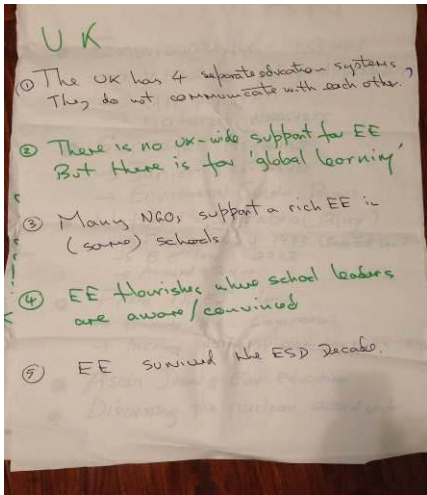 UK
① The UK has 4 separate education systems
They do not communicate with each other.
② There is no UK-wide support for EE
But there is for 'global learning'
③ Many NGOs support a rich EE in
(some) schools
④ EE flourishes where school leaders
are aware/convinced
⑤ EE survived the ESD Decade.